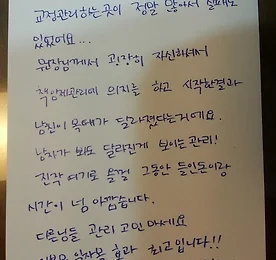 교정관리하는곳이 정말 많아서 실패도
있었어요...
원장님께서 굉장히 자신하셔서
책임제관리에 의지를 하고 시작한결과
남친이 목태가 달라졌다는거에요.
남자가 봐도 달라진게 보이는 관리!
진작 여기로 올걸 그동안 들인돈이랑
시간이 넘 아깝습니다.
다른님들 관리 고민마세요
효과 최고입니다!!